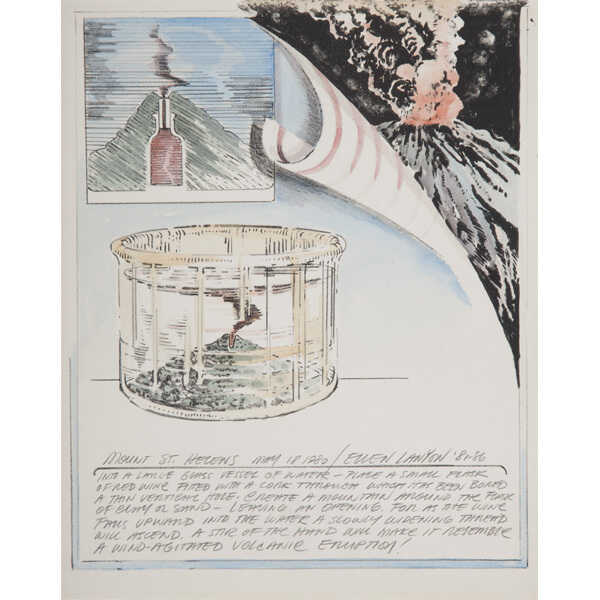 MOUNT ST. HELENS MAY 18 1980 / ELLEN LANYON '81-'86
INTO A LARGE GLASS VESSEL OF WATER - PLACE A SMALL FLASK
OF RED WINE FITTED WITH A CORK THROUGH WHICH HAS BEEN BORED
A THIN VERTICAL HOLE. CREATE A MOUNTAIN AROUND THE FLASK
OF CLAY OR SAND - LEAVING AN OPENING. FOR AS THE WINE
FALLS UPWARD INTO THE WATER A SLOWLY WIDENING THREAD
WILL ASCEND. A STIR OF THE HAND WILL MAKE IT RESEMBLE
A WIND-AGITATED VOLCANIC ERUPTION!